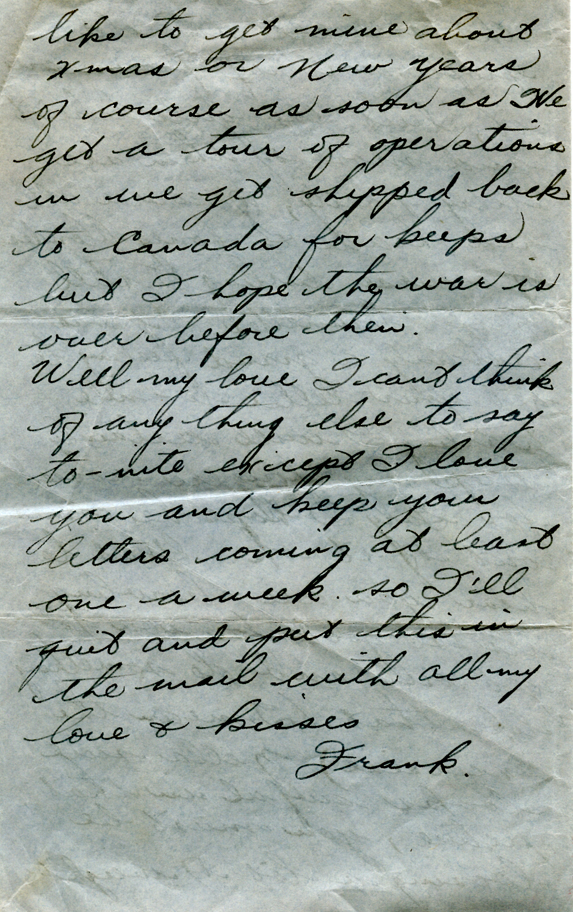 like to get mine about
Xmas or New Years
of course as soon as We
get a tour of operations
in we get shipped back
to Canada for keeps
but I hope the war is
over before then.
Well my love I cant think
of any thing else to say
to-nite except I love
you and keep your
letters coming at least
one a week. so I'll
quit and put this in
the mail with all my
love & kisses
Frank.